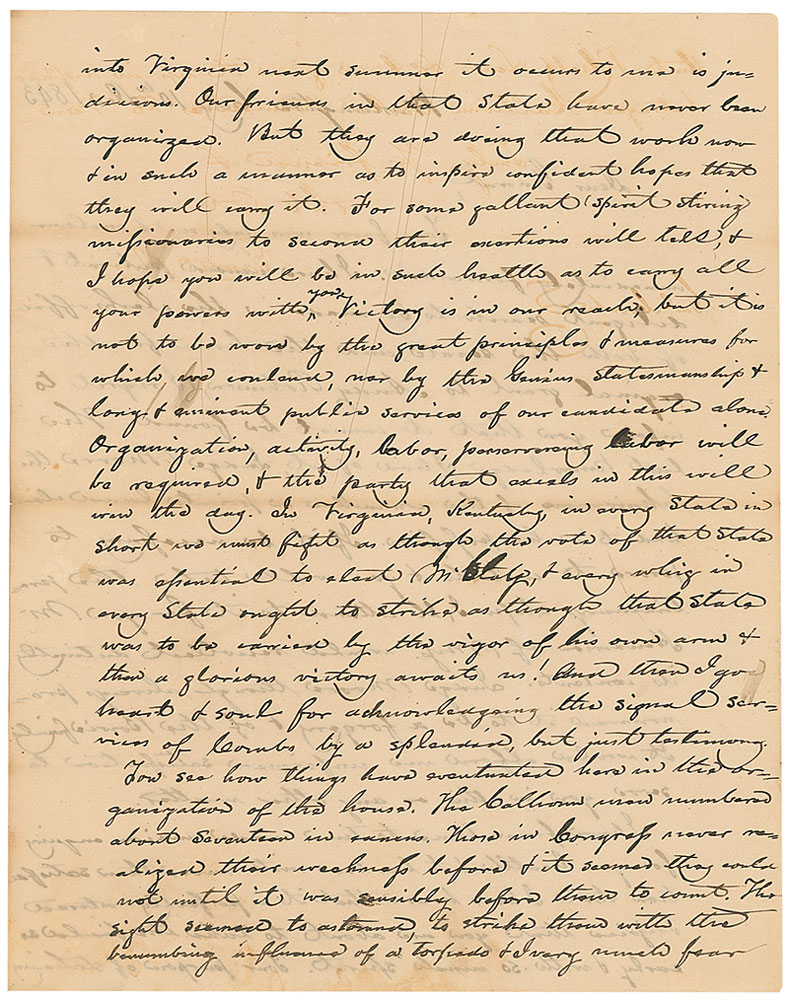 into Virginia next summer it occurs to me is ju-
dicious. Our friends in that State have never been
organized. But they are doing that work now
& in such a manner as to inspire confident hopes that
they will carry it. For some gallant spirit stiring
missionaries to second their exertions will tell, &
I hope you will be in such health as to carry all
your powers with you. Victory is in our reach; but it is
not to be won by the great principles & measures for
which we contend, nor by the Genius Statesmanship &
long & eminent public services of our candidate alone.
Organization, activity, labor, perservereing labor will
be required, & the party that excels in this will
win the day. In Virginia, Kentucky, in every State in
short we must fight as though the vote of that State
was essential to elect Mr Clay, & every whig in
every State ought to strike as though that State
was to be carried by the vigor of his own arm &
then a glorious victory awaits us! And then I go
heart & soul for acknowledgeing the signal ser-
vices of Combs by a splendid, but just testimony.
You see how things have eventuated here in the or-
ganization of the house. The Calhoun men numbered
about seventeen in caucus. Those in Congress never re-
alized their weakness before & it seemed they could
not until it was sensibly before them to count. The
sight seemed to astound, to strike them with the
benumbing influence of a torpedo & I very much fear